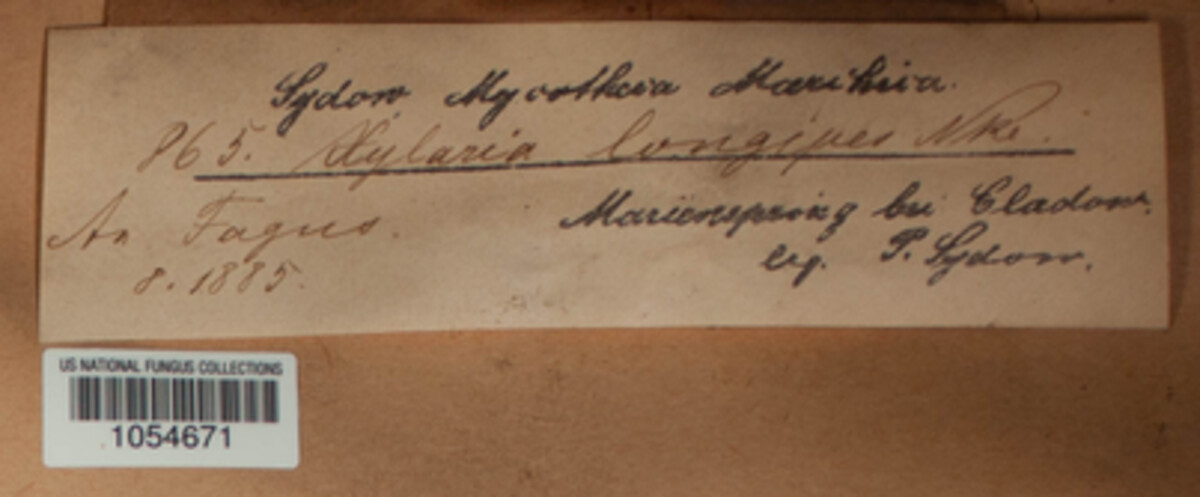 Sydow Mycotheca Marchica.
865. Xylaria longipes Nke.
An Fagus.
8. 1885.
Marienspring bei Cladow.
leg. P. Sydow.
US NATIONAL FUNGUS COLLECTIONS
1054671